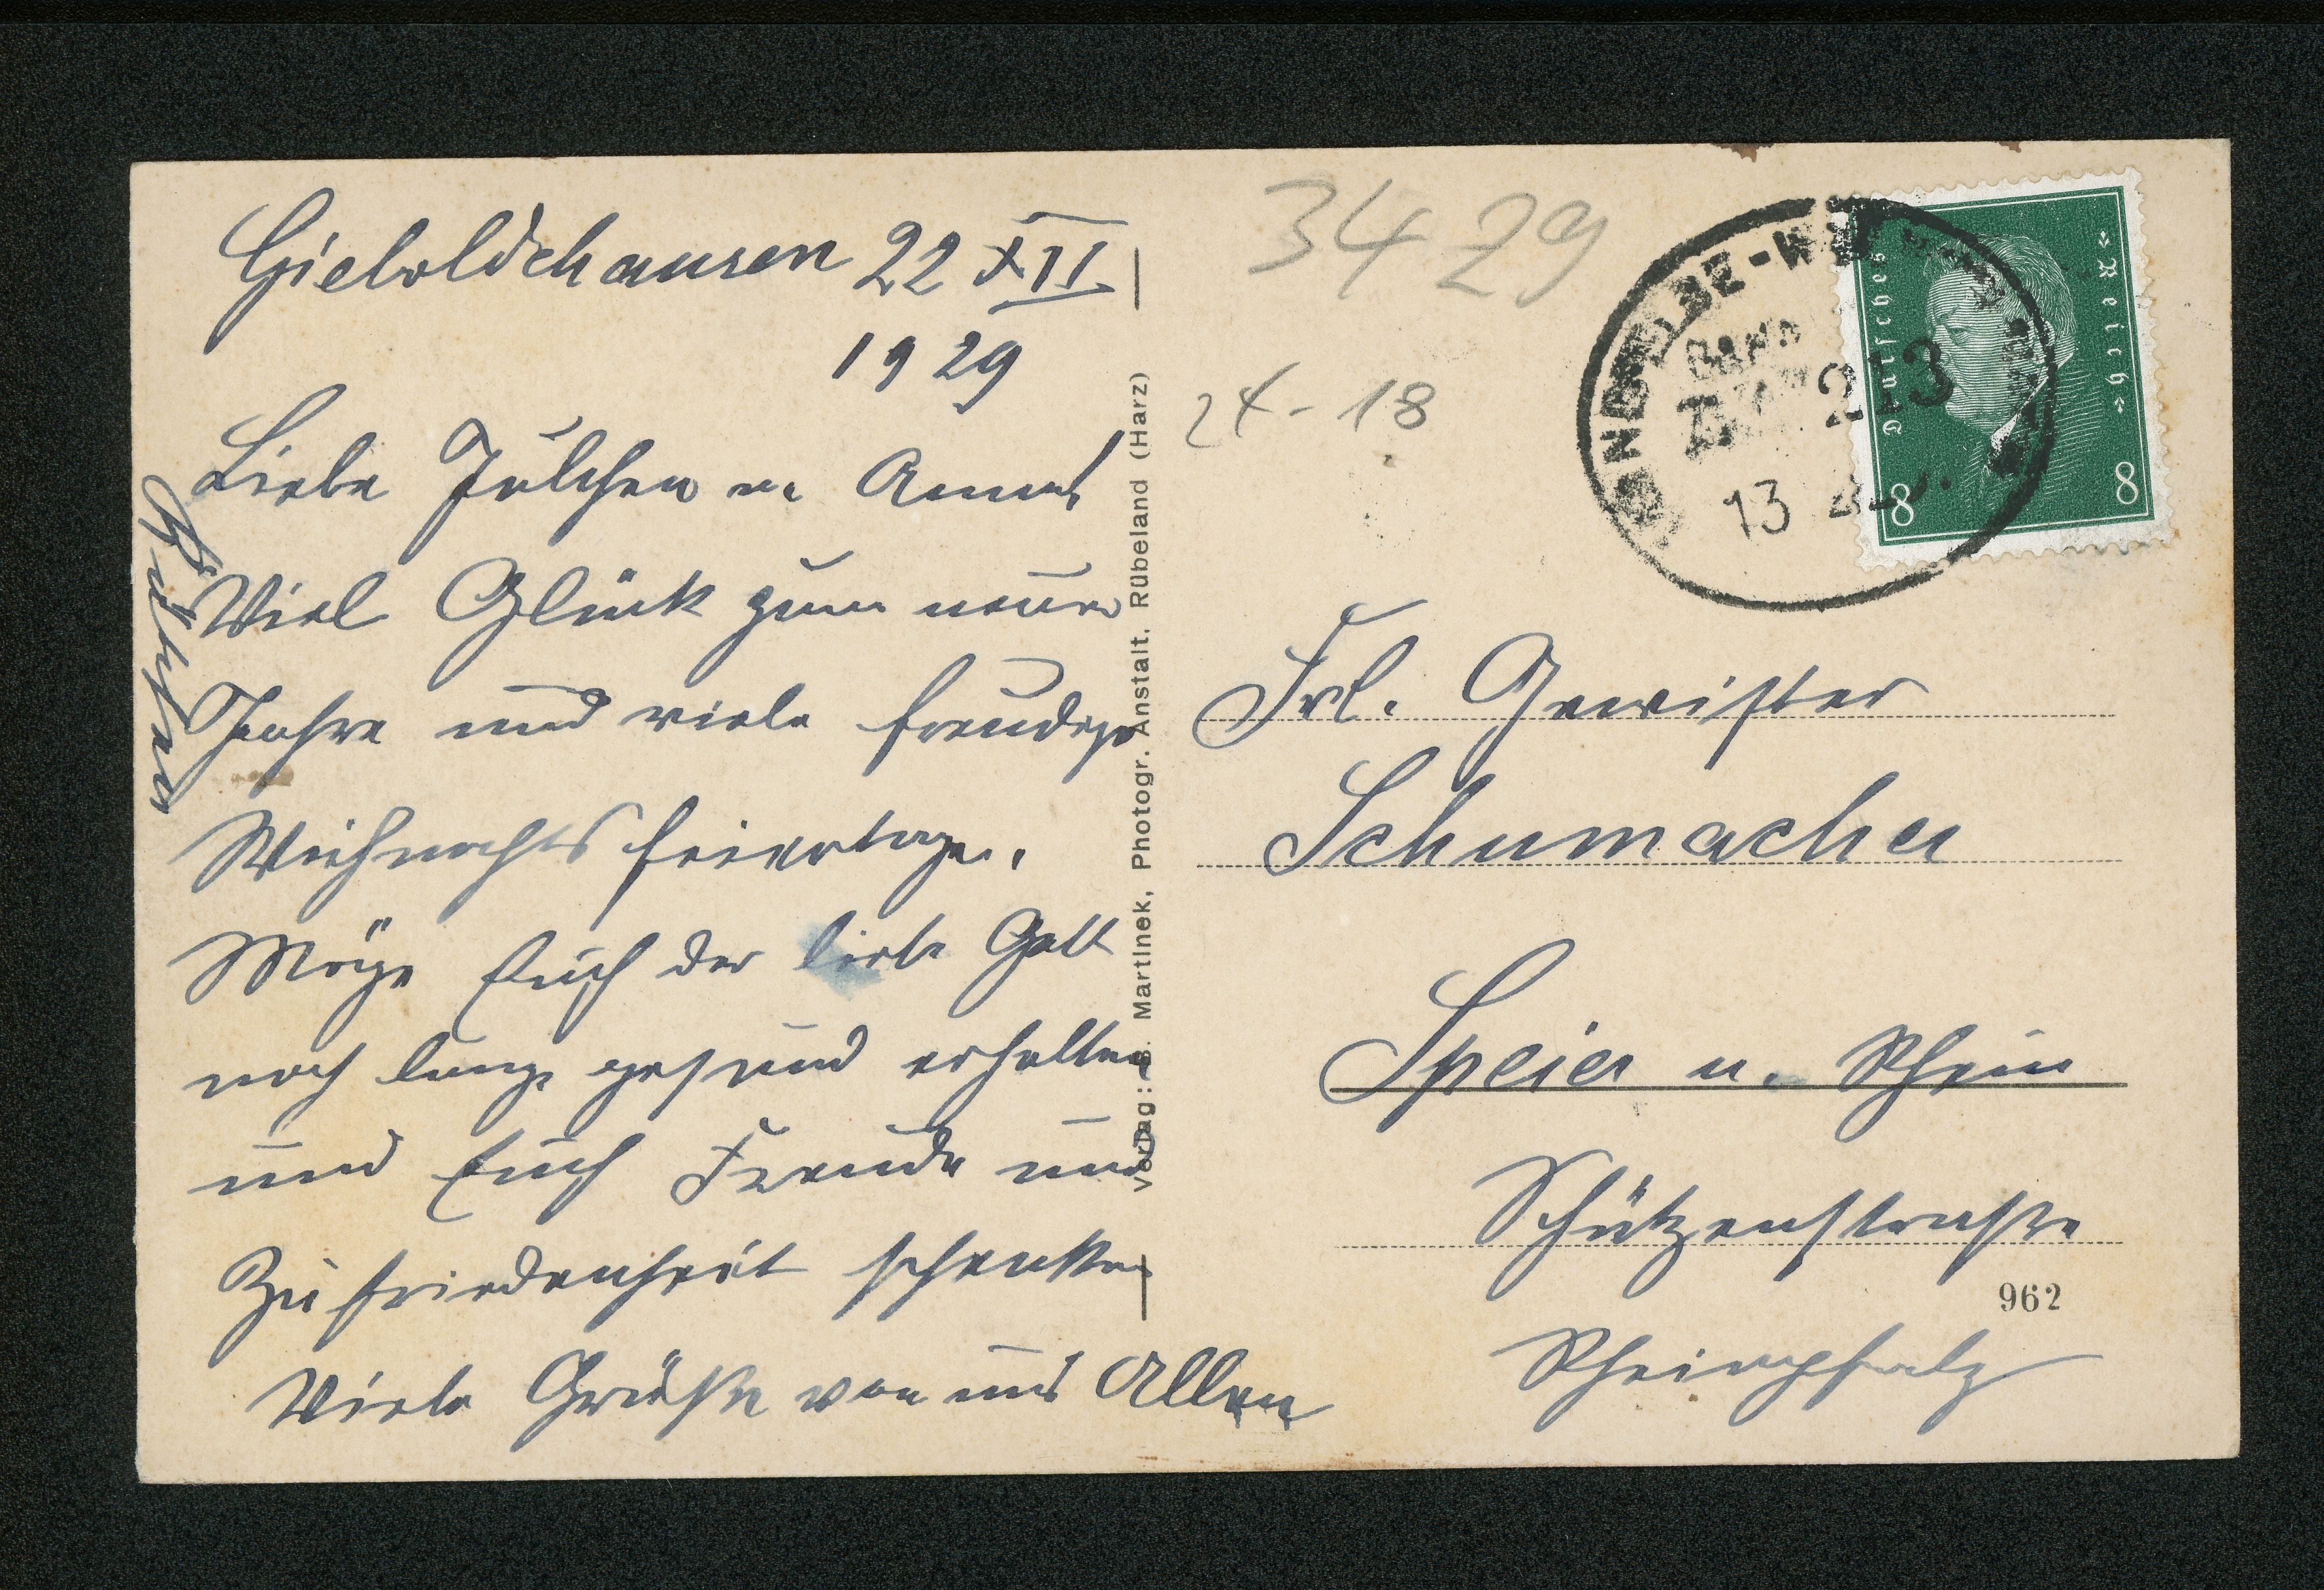 Gieboldehausen 22 XII
1929
Liebe Julchen u. Anna
Viel Glück zum neuen
Jahre und viele freudige
Weihnachtsfeiertage.
Möge Euch der liebe Gott
noch lange gesund erhalten
und Euch Freude und
Zufriedenheit schenken
Viele Grüße von uns Allen
Verlag: Martinek, Photogr. Anstalt, Rübeland (Harz)
3429
24-18
Deutsches Reich
8 8
213
13
Frl. Gewister
Schumacher
Speier a. Rhein
Schützenstraße
962
Rheinpfalz